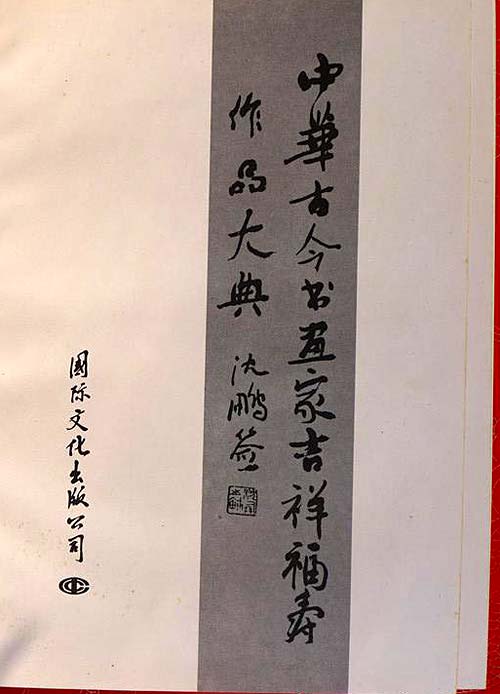 中華古今书画家吉祥福寿
作品大典
沈鹏签
国际文化出版公司